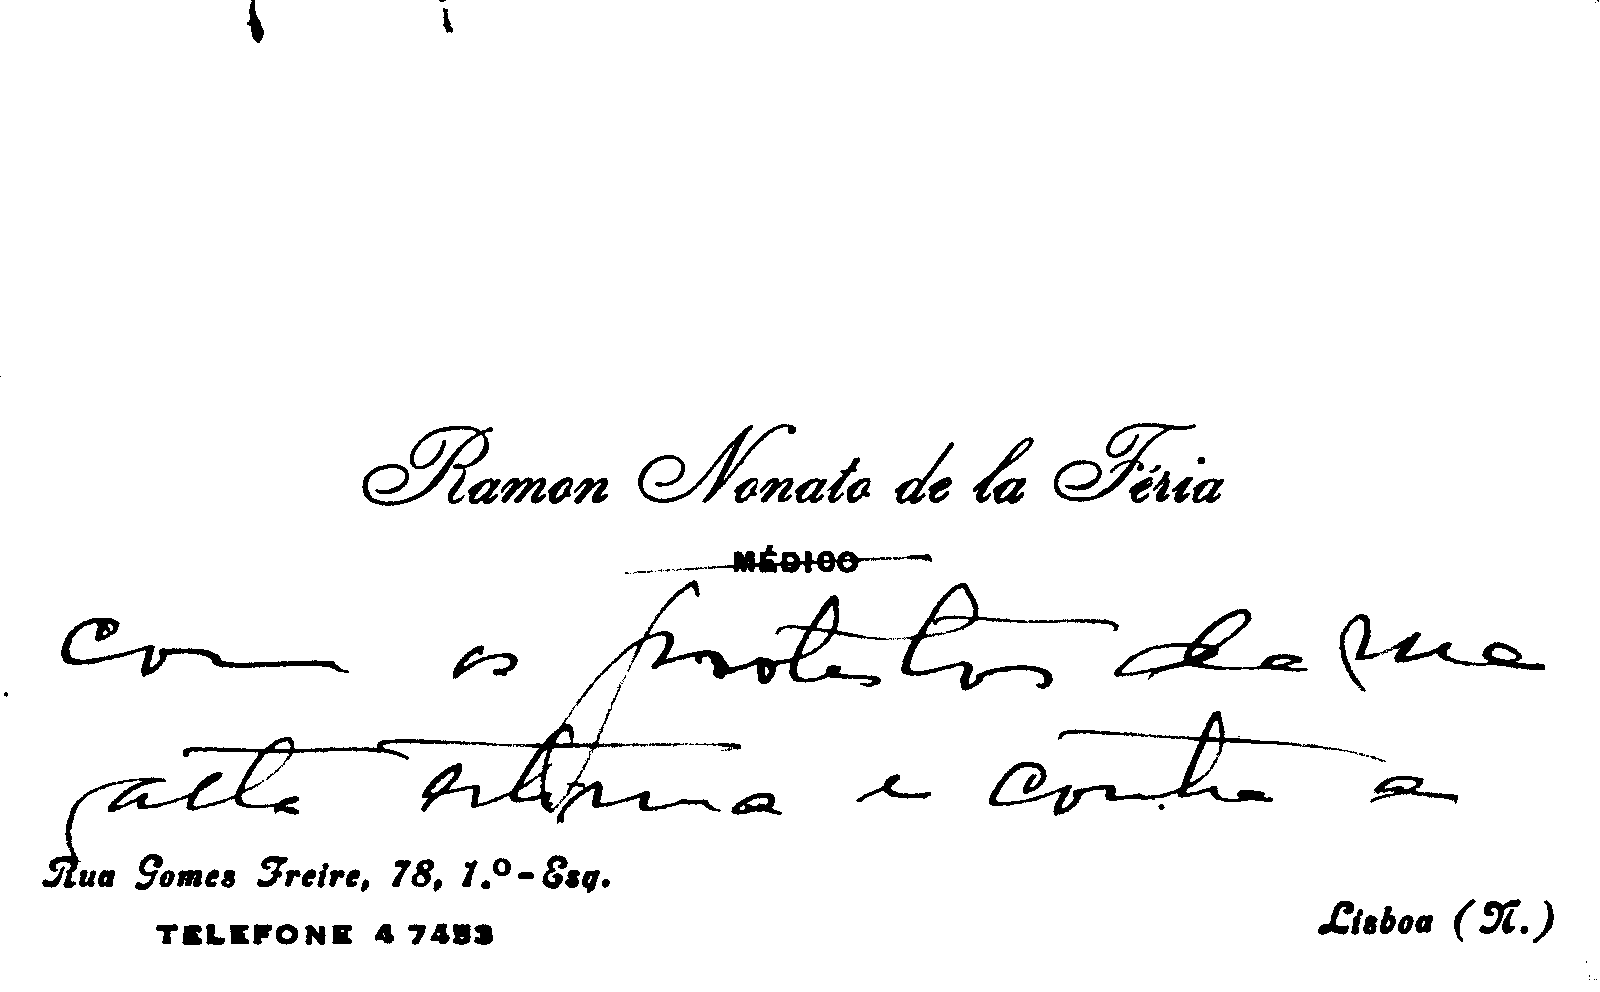 Ramon Nonato de la Féria
MÉDICO
com os protestos da sua
alta estima e conta a
Rua Gomes Freire, 78, 1.º-Esq.
TELEFONE 4 7453
Lisboa (N.)